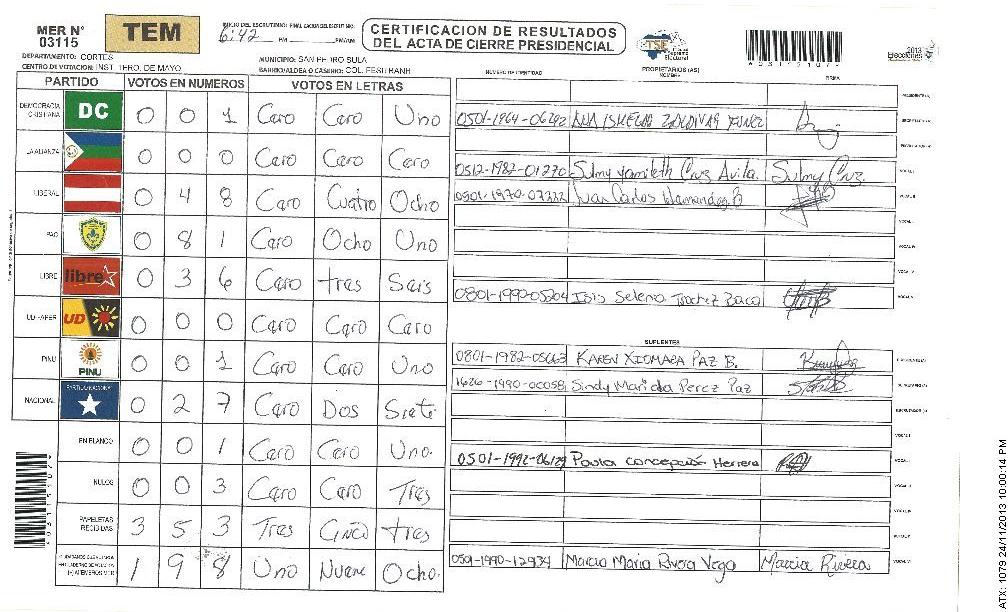 MER N° 03115
TEM
INICIO DEL ESCRUTINIO: FINALIZACION DEL ESCRUTINIO:
6:42 PM PM/AM
CERTIFICACION DE RESULTADOS
DEL ACTA DE CIERRE PRESIDENCIAL
TSE Tribunal Supremo Electoral
2013 Elecciones
DEPARTAMENTO: CORTES
MUNICIPIO: SAN PEDRO SULA
CENTRO DE VOTACION: INST. 1ERO. DE MAYO
PARTIDO VOTOS EN NUMEROS VOTOS EN LETRAS
NUMERO DE IDENTIDAD PROPIETARIOS (AS) NOMBRE FIRMA
DEMOCRACIA CRISTIANA DC 0 0 1 Cero Cero Uno
LA ALIANZA 0 0 0 Cero Cero Cero
LIBERAL 0 4 8 Cero Cuatro Ocho
PAC 0 8 1 Cero Ocho Uno
LIBRE libre 0 3 6 Cero tres Seis
UD-FAPER UD 0 0 0 Cero Cero Cero
PINU PINU 0 0 1 Cero Cero Uno
NACIONAL PARTIDO NACIONAL 0 2 7 Cero Dos Siete
EN BLANCO 0 0 1 Cero Cero Uno.
NULOS 0 0 3 Cero Cero Tres
PAPELETAS RECIBIDAS 3 5 3 Tres Cinco tres
1 9 8 Uno Nueve Ocho.
Sulmy Yamileth Cruz Avila. Sulmy Cruz.
0501-1970-07332 Juan Carlos Hernandez B
SUPLENTES
0801-1982-05663 KAREN XIOMARA PAZ B.
1626-1990-00058 Sindy Mariela Perez Paz
0501-1992-06129 Paola Concepción Herrera
Marcia Maria Rivera Vega Marcia Rivera
ATX: 1079 24/11/2013 10:00:14 PM